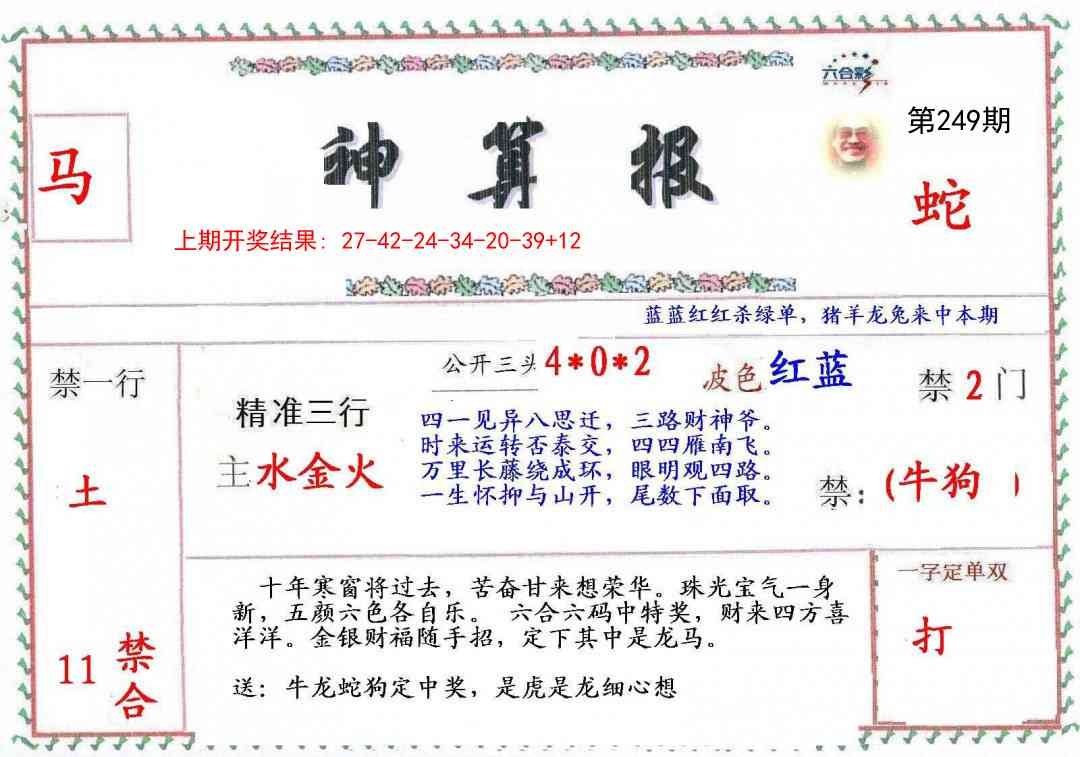 六合彩
第249期
马
神算报
蛇
上期开奖结果: 27-42-24-34-20-39+12
蓝蓝红红杀绿单，猪羊龙兔来中本期
禁一行
土
11 禁合
精准三行
主水金火
公开三头 4*0*2
波色 红蓝
四一见异八思迁，三路财神爷。
时来运转否泰交，四四雁南飞。
万里长藤绕成环，眼明观四路。
一生怀抑与山开，尾数下面取。
禁2门
禁:(牛狗 )
十年寒窗将过去，苦奋甘来想荣华。珠光宝气一身
新，五颜六色各自乐。 六合六码中特奖，财来四方喜
洋洋。金银财福随手招，定下其中是龙马。
送：牛龙蛇狗定中奖，是虎是龙细心想
一字定单双
打